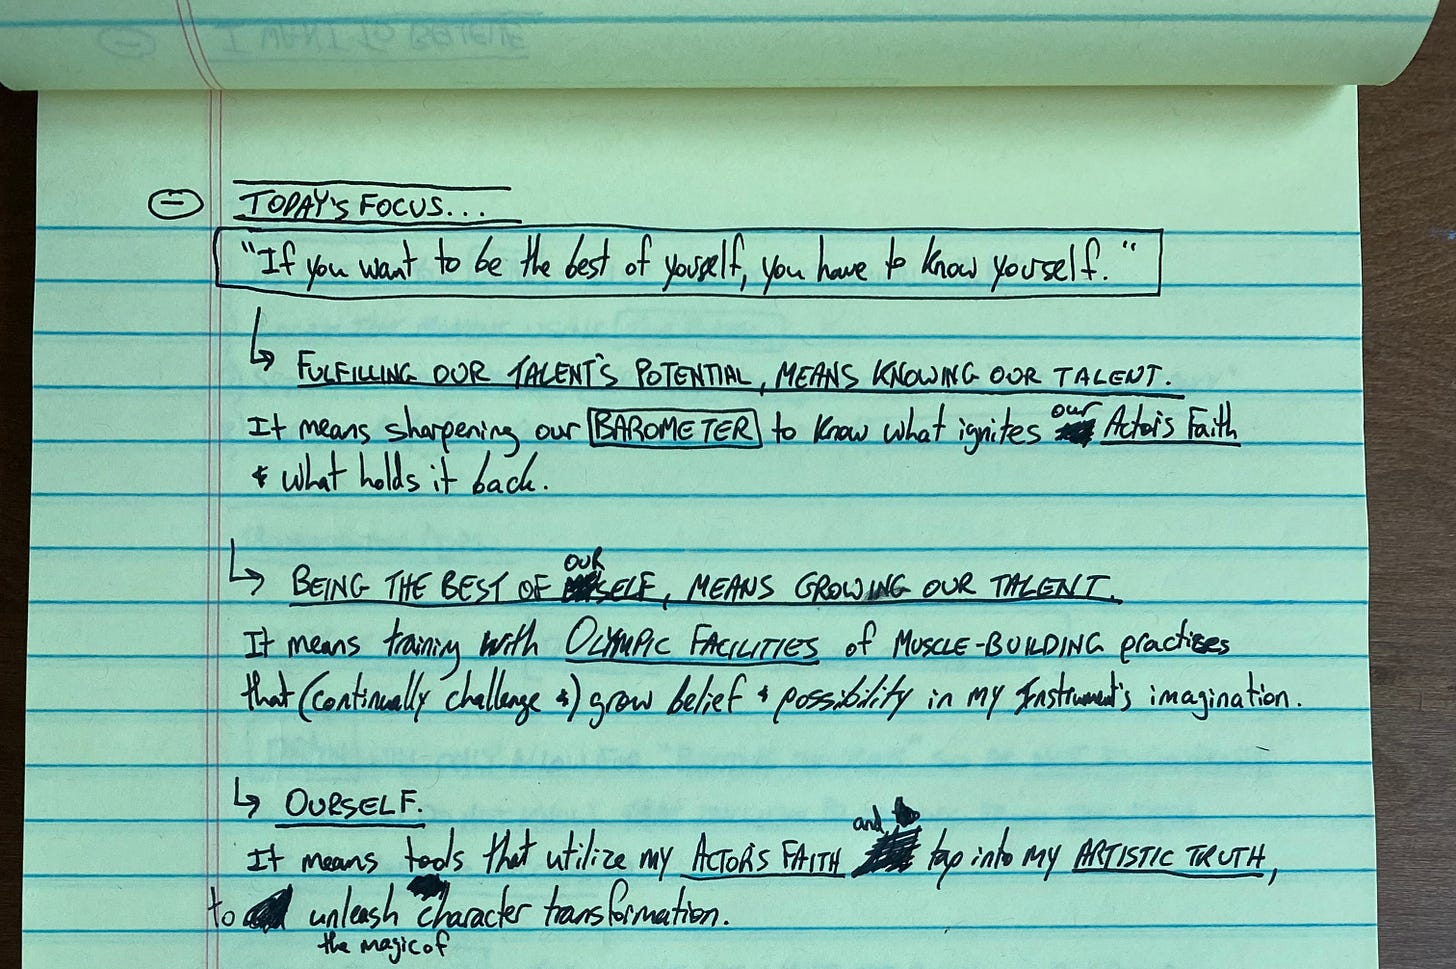 I WANT TO BELIEVE
TODAY'S FOCUS...
"If you want to be the best of yourself, you have to know yourself."
FULFILLING OUR TALENT'S POTENTIAL, MEANS KNOWING OUR TALENT.
It means sharpening our BAROMETER to know what ignites our Actor's Faith
& what holds it back.
BEING THE BEST OF OURSELF, MEANS GROWING OUR TALENT.
It means training with OLYMPIC FACILITIES of MUSCLE-BUILDING practises
that (continually challenge &) grow belief & possibility in my Instrument's imagination.
OURSELF.
It means tools that utilize my ACTOR'S FAITH and tap into my ARTISTIC TRUTH,
to unleash the magic of character transformation.